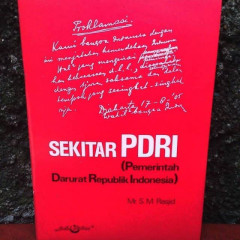 Proklamasi
Kami bangsa Indonesia dengan
ini menjatakan kemerdekaan Indonesia.
Hal² yang mengenai
kekoeasaan d.l.l.,
dengan tjara saksama dan dalam
tempoh yang sesingkat-singkatnja.
Djakarta 17-8-'05
Wakil bangsa Ind.
SEKITAR PDRI
(Pemerintah
Darurat Republik Indonesia)
Mr S.M. Rasjid